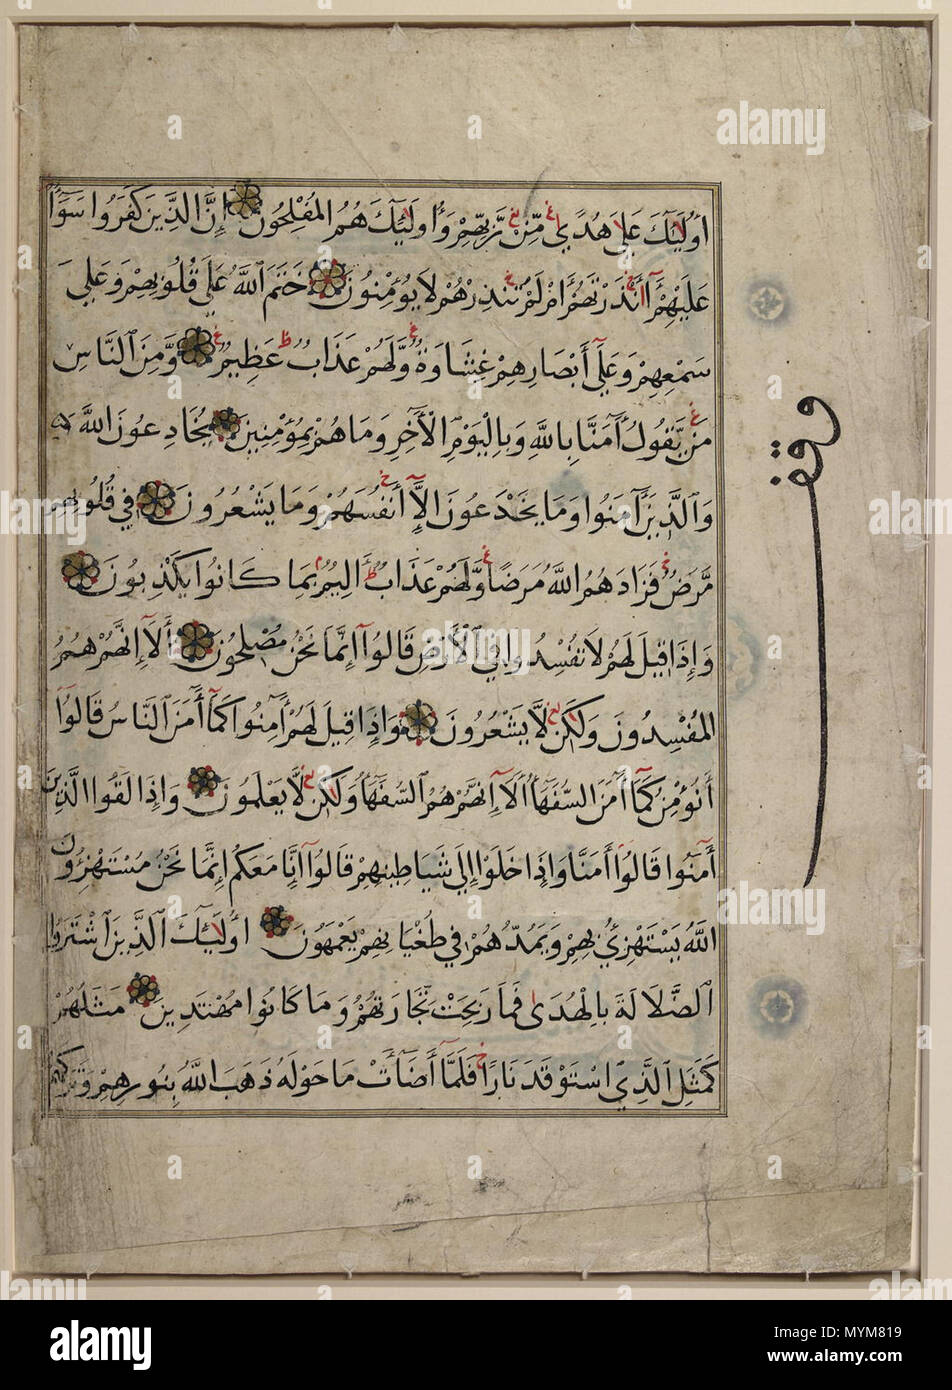 أُولَٰئِكَ عَلَىٰ هُدًى مِّن رَّبِّهِمْ وَأُولَٰئِكَ هُمُ الْمُفْلِحُونَ إِنَّ الَّذِينَ كَفَرُوا سَوَاءٌ
عَلَيْهِمْ أَأَنذَرْتَهُمْ أَمْ لَمْ تُنذِرْهُمْ لَا يُؤْمِنُونَ خَتَمَ اللَّهُ عَلَىٰ قُلُوبِهِمْ وَعَلَىٰ
سَمْعِهِمْ وَعَلَىٰ أَبْصَارِهِمْ غِشَاوَةٌ وَلَهُمْ عَذَابٌ عَظِيمٌ وَمِنَ النَّاسِ
مَن يَقُولُ آمَنَّا بِاللَّهِ وَبِالْيَوْمِ الْآخِرِ وَمَا هُم بِمُؤْمِنِينَ يُخَادِعُونَ اللَّهَ
وَالَّذِينَ آمَنُوا وَمَا يَخْدَعُونَ إِلَّا أَنفُسَهُمْ وَمَا يَشْعُرُونَ فِي قُلُوبِهِم
مَّرَضٌ فَزَادَهُمُ اللَّهُ مَرَضًا وَلَهُمْ عَذَابٌ أَلِيمٌ بِمَا كَانُوا يَكْذِبُونَ
وَإِذَا قِيلَ لَهُمْ لَا تُفْسِدُوا فِي الْأَرْضِ قَالُوا إِنَّمَا نَحْنُ مُصْلِحُونَ أَلَا إِنَّهُمْ هُمُ
الْمُفْسِدُونَ وَلَٰكِن لَّا يَشْعُرُونَ وَإِذَا قِيلَ لَهُمْ آمِنُوا كَمَا آمَنَ النَّاسُ قَالُوا
أَنُؤْمِنُ كَمَا آمَنَ السُّفَهَاءُ أَلَا إِنَّهُمْ هُمُ السُّفَهَاءُ وَلَٰكِن لَّا يَعْلَمُونَ وَإِذَا لَقُوا الَّذِينَ
آمَنُوا قَالُوا آمَنَّا وَإِذَا خَلَوْا إِلَىٰ شَيَاطِينِهِمْ قَالُوا إِنَّا مَعَكُمْ إِنَّمَا نَحْنُ مُسْتَهْزِئُونَ
اللَّهُ يَسْتَهْزِئُ بِهِمْ وَيَمُدُّهُمْ فِي طُغْيَانِهِمْ يَعْمَهُونَ أُولَٰئِكَ الَّذِينَ اشْتَرَوُا
الضَّلَالَةَ بِالْهُدَىٰ فَمَا رَبِحَت تِّجَارَتُهُمْ وَمَا كَانُوا مُهْتَدِينَ مَثَلُهُمْ
كَمَثَلِ الَّذِي اسْتَوْقَدَ نَارًا فَلَمَّا أَضَاءَتْ مَا حَوْلَهُ ذَهَبَ اللَّهُ بِنُورِهِمْ وَتَرَكَهُمْ
وقف
alamy
alamy
Image ID: MYM819
www.alamy.com